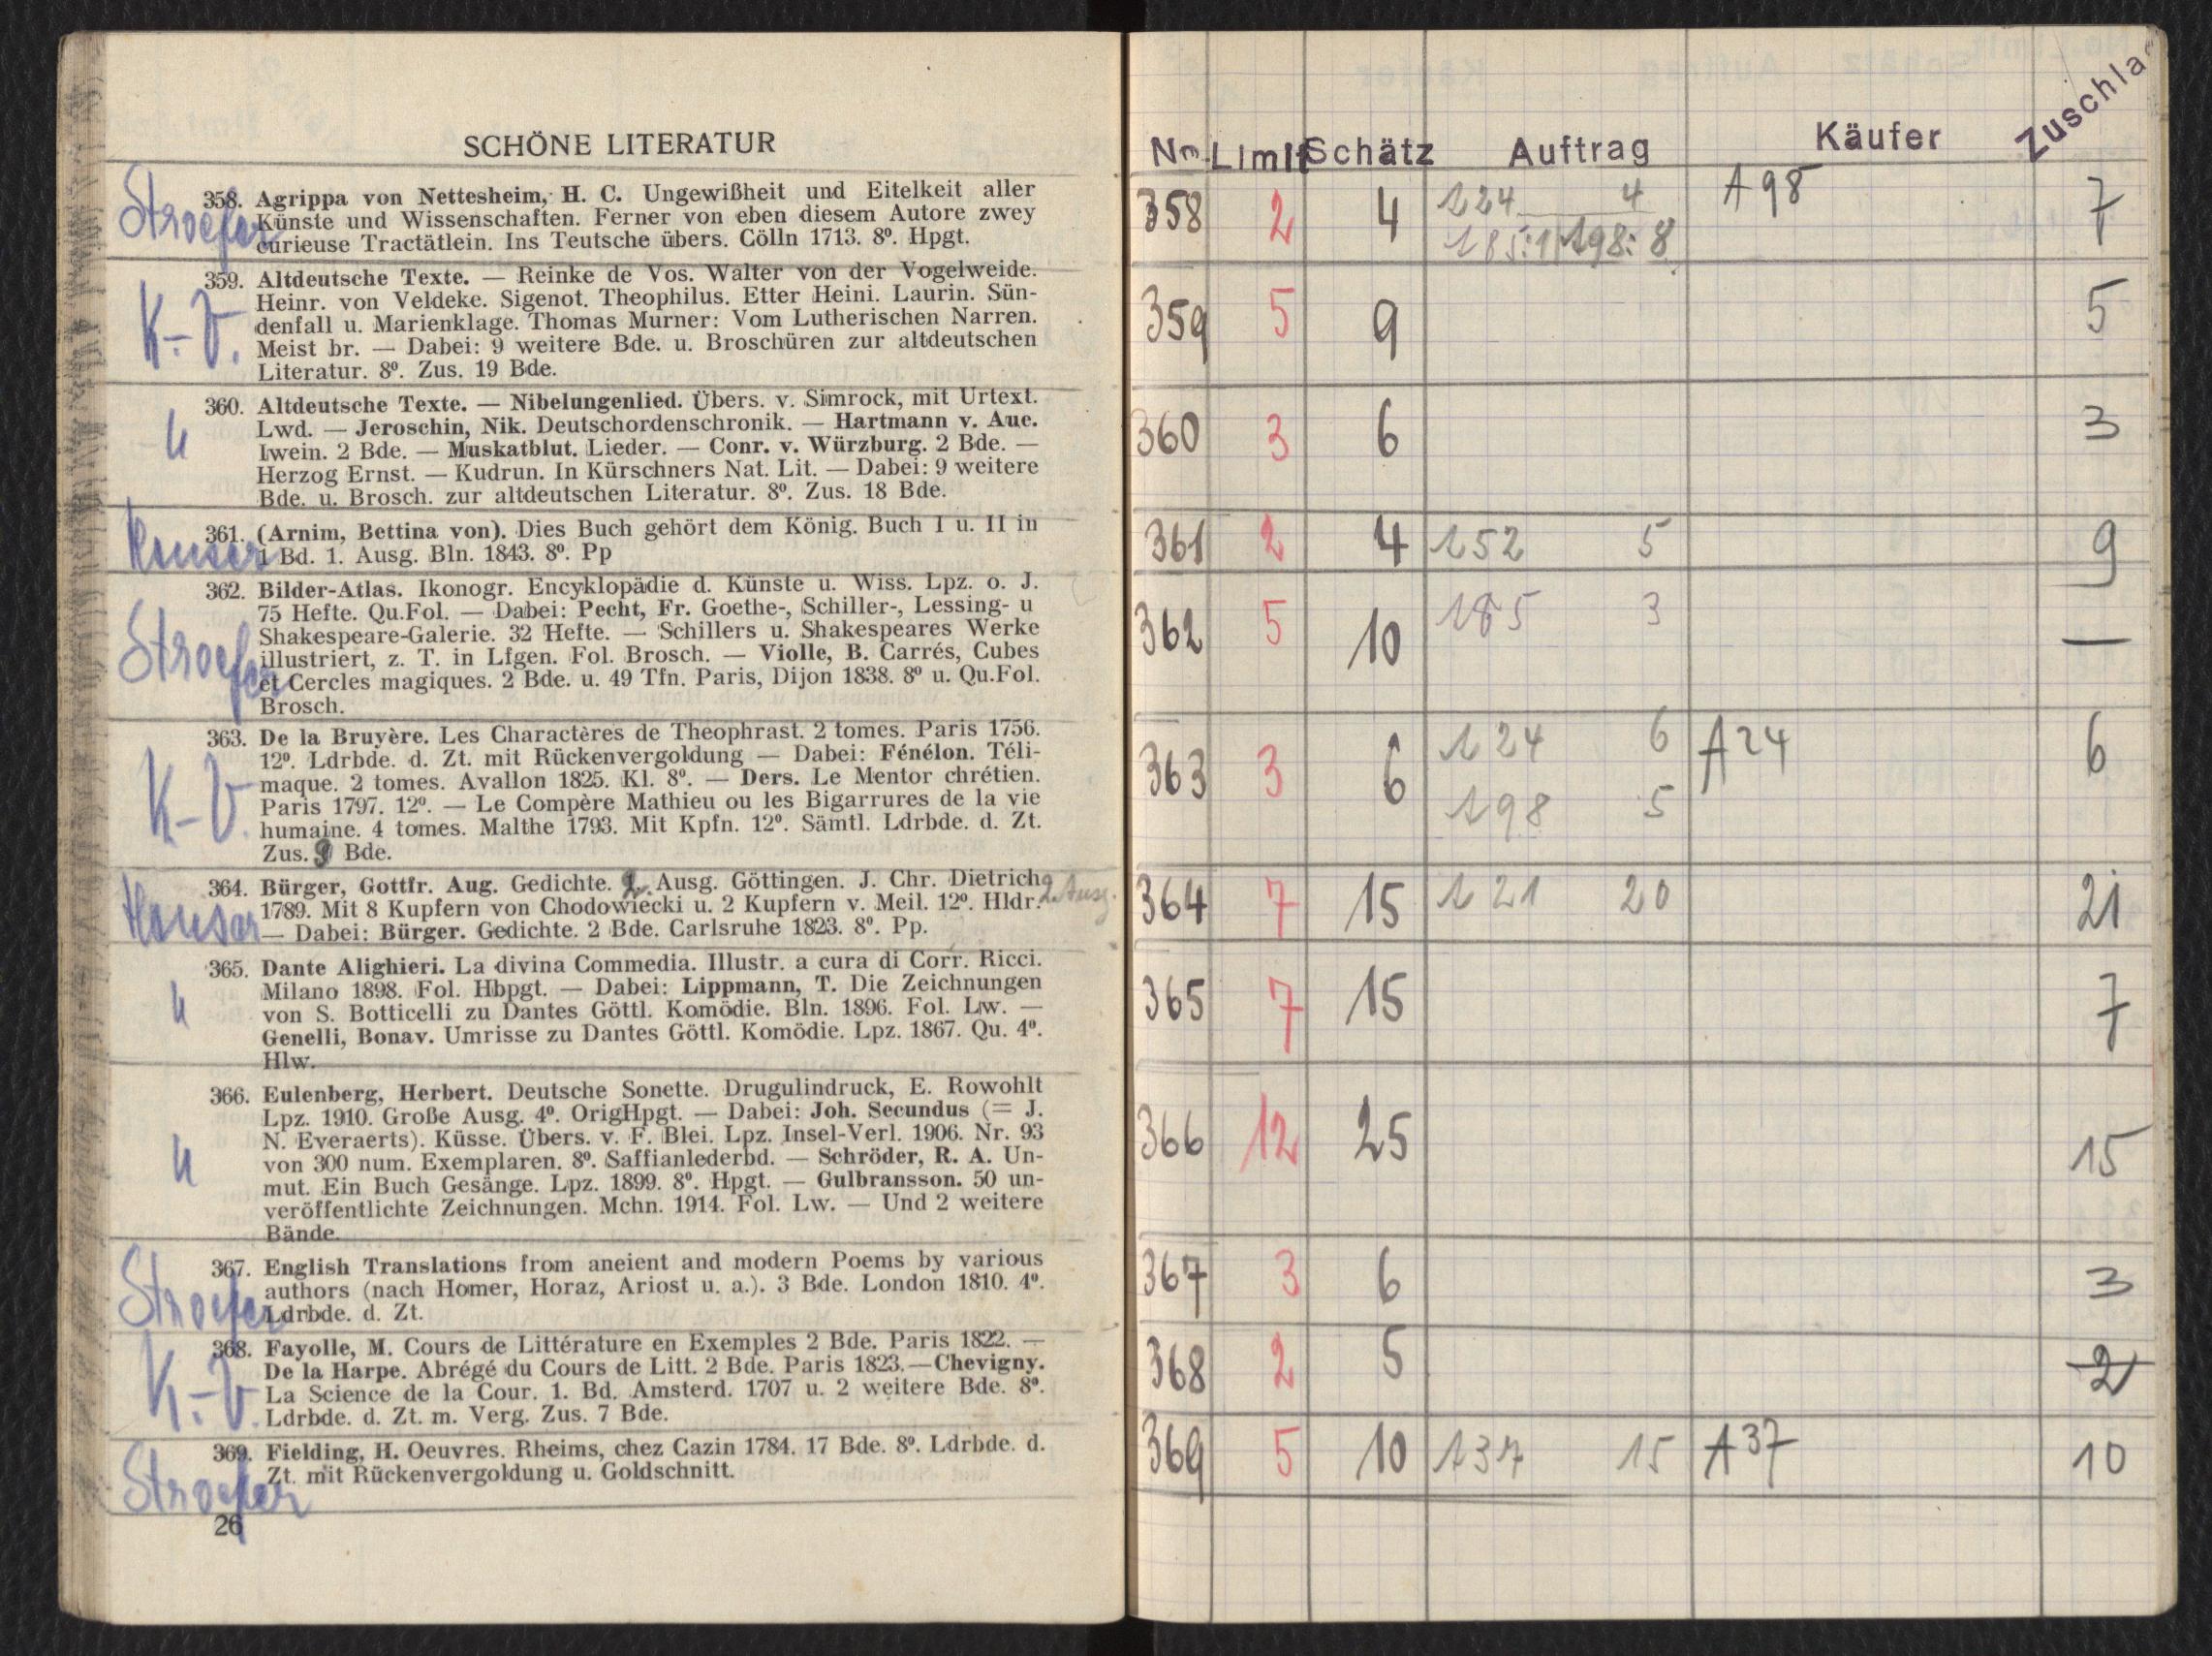 SCHÖNE LITERATUR
Stroefer
358. Agrippa von Nettesheim, H. C. Ungewißheit und Eitelkeit aller
Künste und Wissenschaften. Ferner von eben diesem Autore zwey
curieuse Tractätlein. Ins Teutsche übers. Cölln 1713. 8º. Hpgt.
K.-V.
359. Altdeutsche Texte. — Reinke de Vos. Walter von der Vogelweide.
Heinr. von Veldeke. Sigenot. Theophilus. Etter Heini. Laurin. Sün-
denfall u. Marienklage. Thomas Murner: Vom Lutherischen Narren.
Meist br. — Dabei: 9 weitere Bde. u. Broschüren zur altdeutschen
Literatur. 8º. Zus. 19 Bde.
360. Altdeutsche Texte. — Nibelungenlied. Übers. v. Simrock, mit Urtext.
Lwd. — Jeroschin, Nik. Deutschordenschronik. — Hartmann v. Aue.
Iwein. 2 Bde. — Muskatblut. Lieder. — Conr. v. Würzburg. 2 Bde. —
Herzog Ernst. — Kudrun. In Kürschners Nat. Lit. — Dabei: 9 weitere
Bde. u. Brosch. zur altdeutschen Literatur. 8º. Zus. 18 Bde.
Hauser
361. (Arnim, Bettina von). Dies Buch gehört dem König. Buch I u. II in
1 Bd. 1. Ausg. Bln. 1843. 8º. Pp
Stroefer
362. Bilder-Atlas. Ikonogr. Encyklopädie d. Künste u. Wiss. Lpz. o. J.
75 Hefte. Qu.Fol. — Dabei: Pecht, Fr. Goethe-, Schiller-, Lessing- u
Shakespeare-Galerie. 32 Hefte. — Schillers u. Shakespeares Werke
illustriert, z. T. in Lfgen. Fol. Brosch. — Violle, B. Carrés, Cubes
et Cercles magiques. 2 Bde. u. 49 Tfn. Paris, Dijon 1838. 8º u. Qu.Fol.
Brosch.
K-V.
363. De la Bruyère. Les Charactères de Theophrast. 2 tomes. Paris 1756.
12º. Ldrbde. d. Zt. mit Rückenvergoldung — Dabei: Fénélon. Téli-
maque. 2 tomes. Avallon 1825. Kl. 8º. — Ders. Le Mentor chrétien.
Paris 1797. 12º. — Le Compère Mathieu ou les Bigarrures de la vie
humaine. 4 tomes. Malthe 1793. Mit Kpfn. 12º. Sämtl. Ldrbde. d. Zt.
Zus. 9 Bde.
Hauser
364. Bürger, Gottfr. Aug. Gedichte. 2. Ausg. Göttingen. J. Chr. Dietrich 2. Ausg.
1789. Mit 8 Kupfern von Chodowiecki u. 2 Kupfern v. Meil. 12º. Hldr.
— Dabei: Bürger. Gedichte. 2 Bde. Carlsruhe 1823. 8º. Pp.
365. Dante Alighieri. La divina Commedia. Illustr. a cura di Corr. Ricci.
Milano 1898. Fol. Hbpgt. — Dabei: Lippmann, T. Die Zeichnungen
von S. Botticelli zu Dantes Göttl. Komödie. Bln. 1896. Fol. Lw. —
Genelli, Bonav. Umrisse zu Dantes Göttl. Komödie. Lpz. 1867. Qu. 4º.
Hlw.
366. Eulenberg, Herbert. Deutsche Sonette. Drugulindruck, E. Rowohlt
Lpz. 1910. Große Ausg. 4º. OrigHpgt. — Dabei: Joh. Secundus (= J.
N. Everaerts). Küsse. Übers. v. F. Blei. Lpz. Insel-Verl. 1906. Nr. 93
von 300 num. Exemplaren. 8º. Saffianlederbd. — Schröder, R. A. Un-
mut. Ein Buch Gesänge. Lpz. 1899. 8º. Hpgt. — Gulbransson. 50 un-
veröffentlichte Zeichnungen. Mchn. 1914. Fol. Lw. — Und 2 weitere
Bände.
Stroefer
367. English Translations from aneient and modern Poems by various
authors (nach Homer, Horaz, Ariost u. a.). 3 Bde. London 1810. 4º.
Ldrbde. d. Zt.
K.-V.
368. Fayolle, M. Cours de Littérature en Exemples 2 Bde. Paris 1822. —
De la Harpe. Abrégé du Cours de Litt. 2 Bde. Paris 1823.—Chevigny.
La Science de la Cour. 1. Bd. Amsterd. 1707 u. 2 weitere Bde. 8º.
Ldrbde. d. Zt. m. Verg. Zus. 7 Bde.
Stroefer
369. Fielding, H. Oeuvres. Rheims, chez Cazin 1784. 17 Bde. 8º. Ldrbde. d.
Zt. mit Rückenvergoldung u. Goldschnitt.
26
Nr. Limit Schätz Auftrag Käufer Zuschla
358 2 4 124 4 A 98 7
185: 198: 8
359 5 9 5
360 3 6 3
361 2 4 152 5 9
362 5 10 185 3 —
363 3 6 124 6 A 24 6
198 5
364 7 15 121 20 21
365 7 15 7
366 12 25 15
367 3 6 3
368 2 5 2
369 5 10 137 15 A 37 10